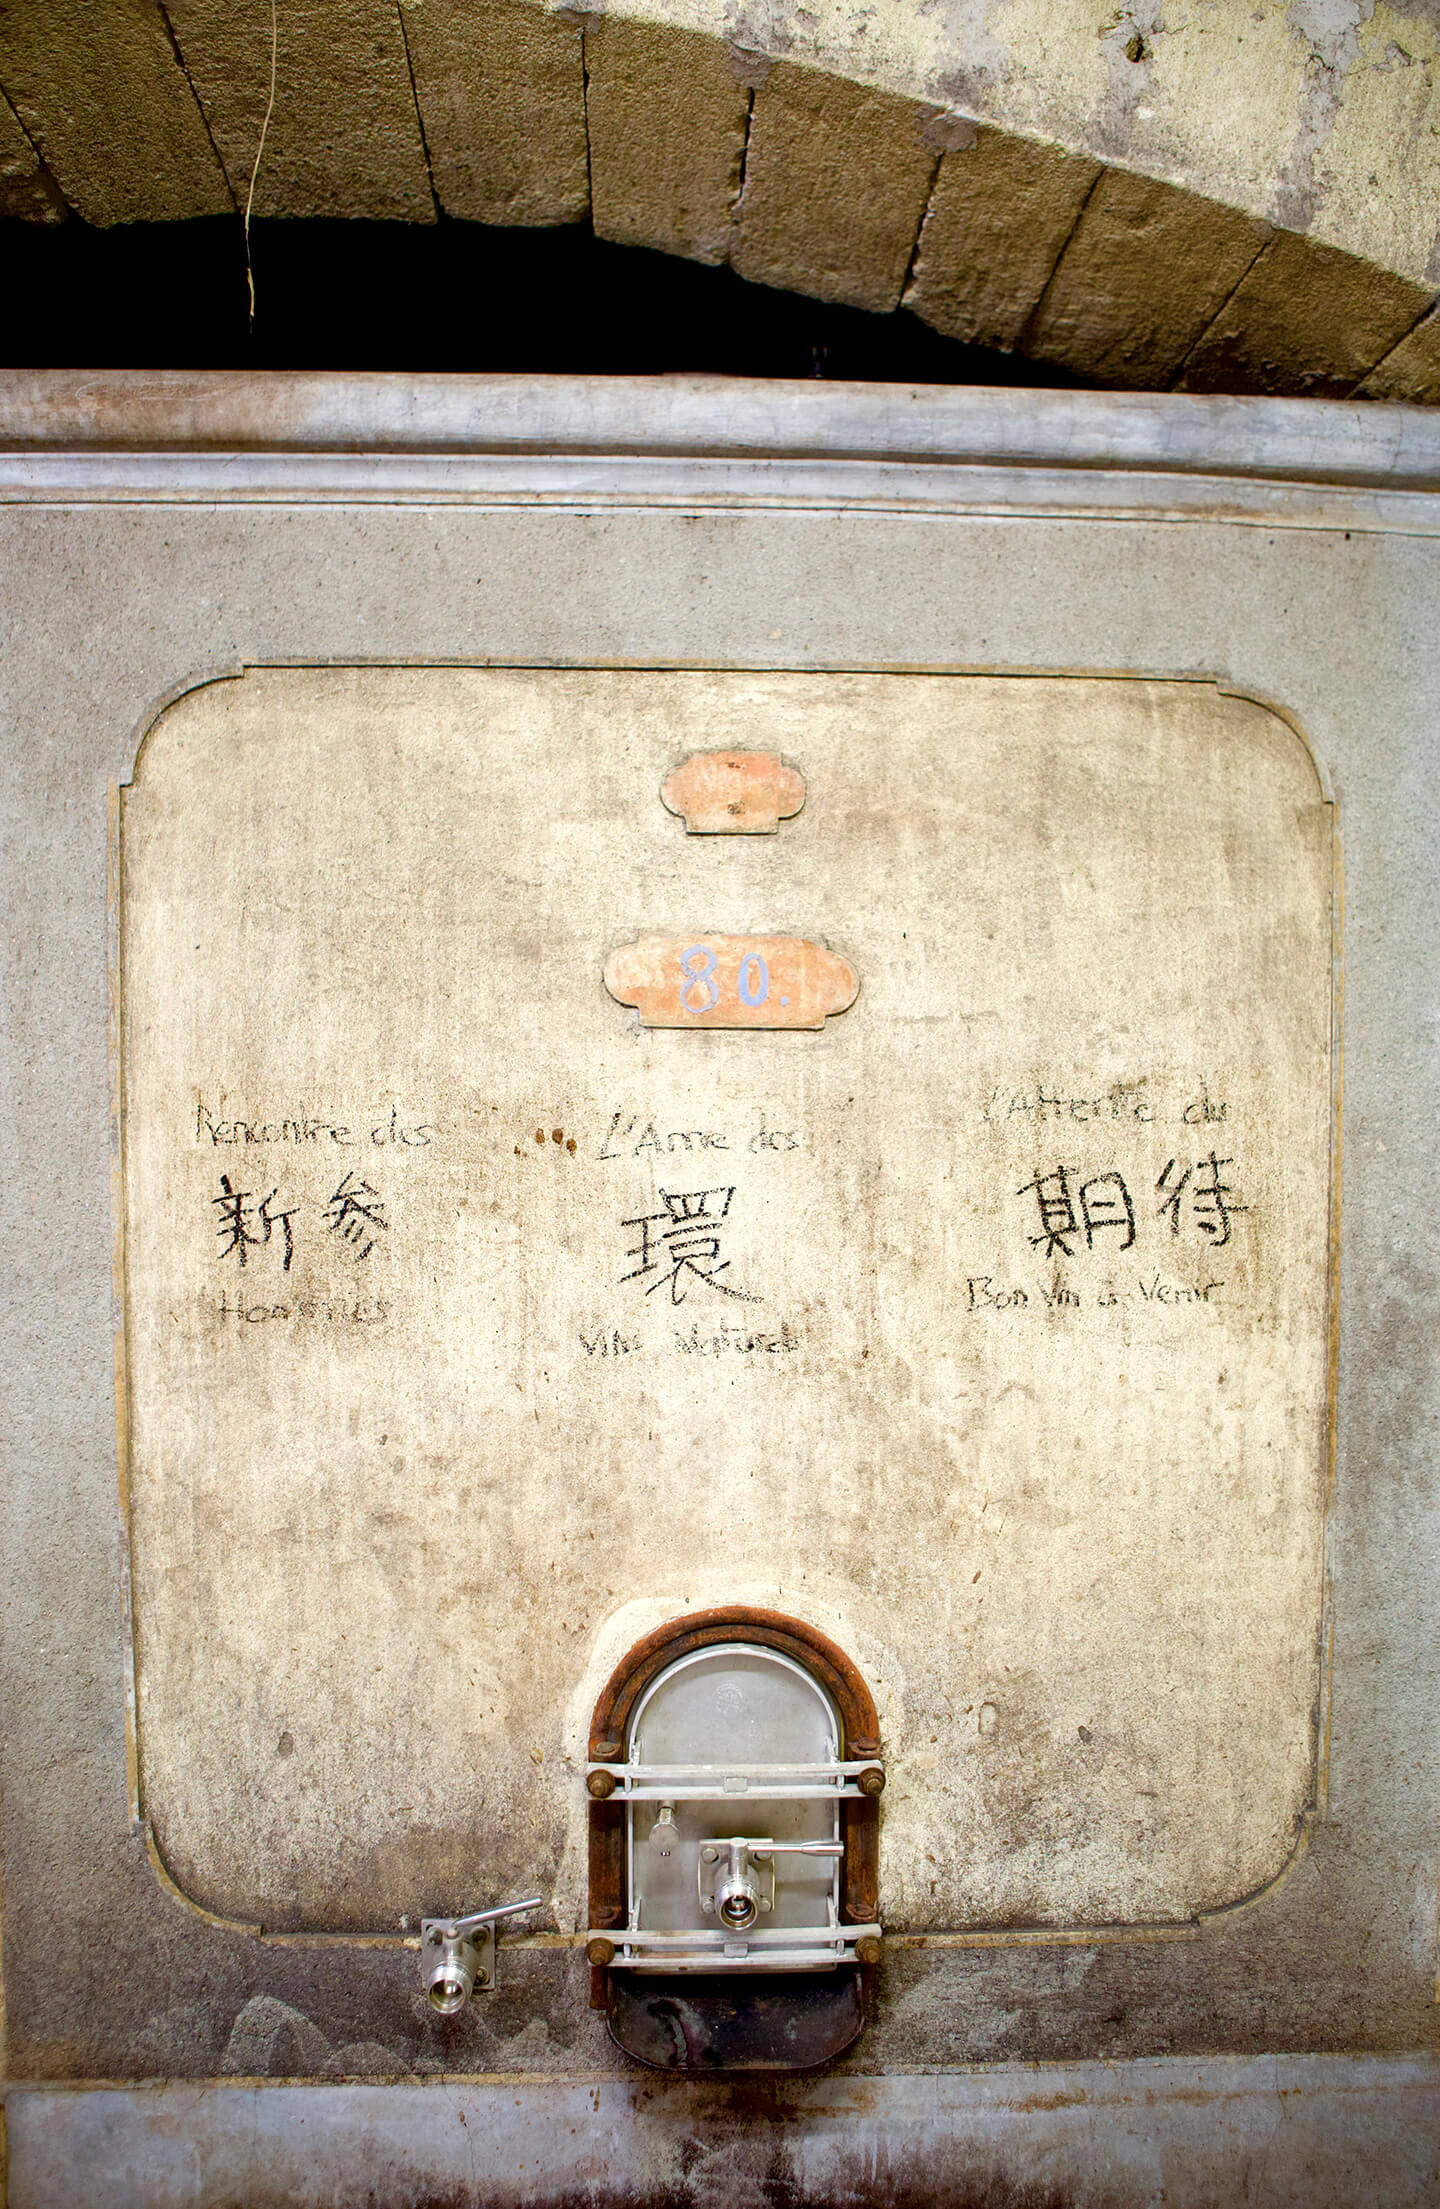 80.
Rencontre des
新参
Hommes
L'Ame des
環
Vins Naturels
L'Attente du
期待
Bon Vin à Venir